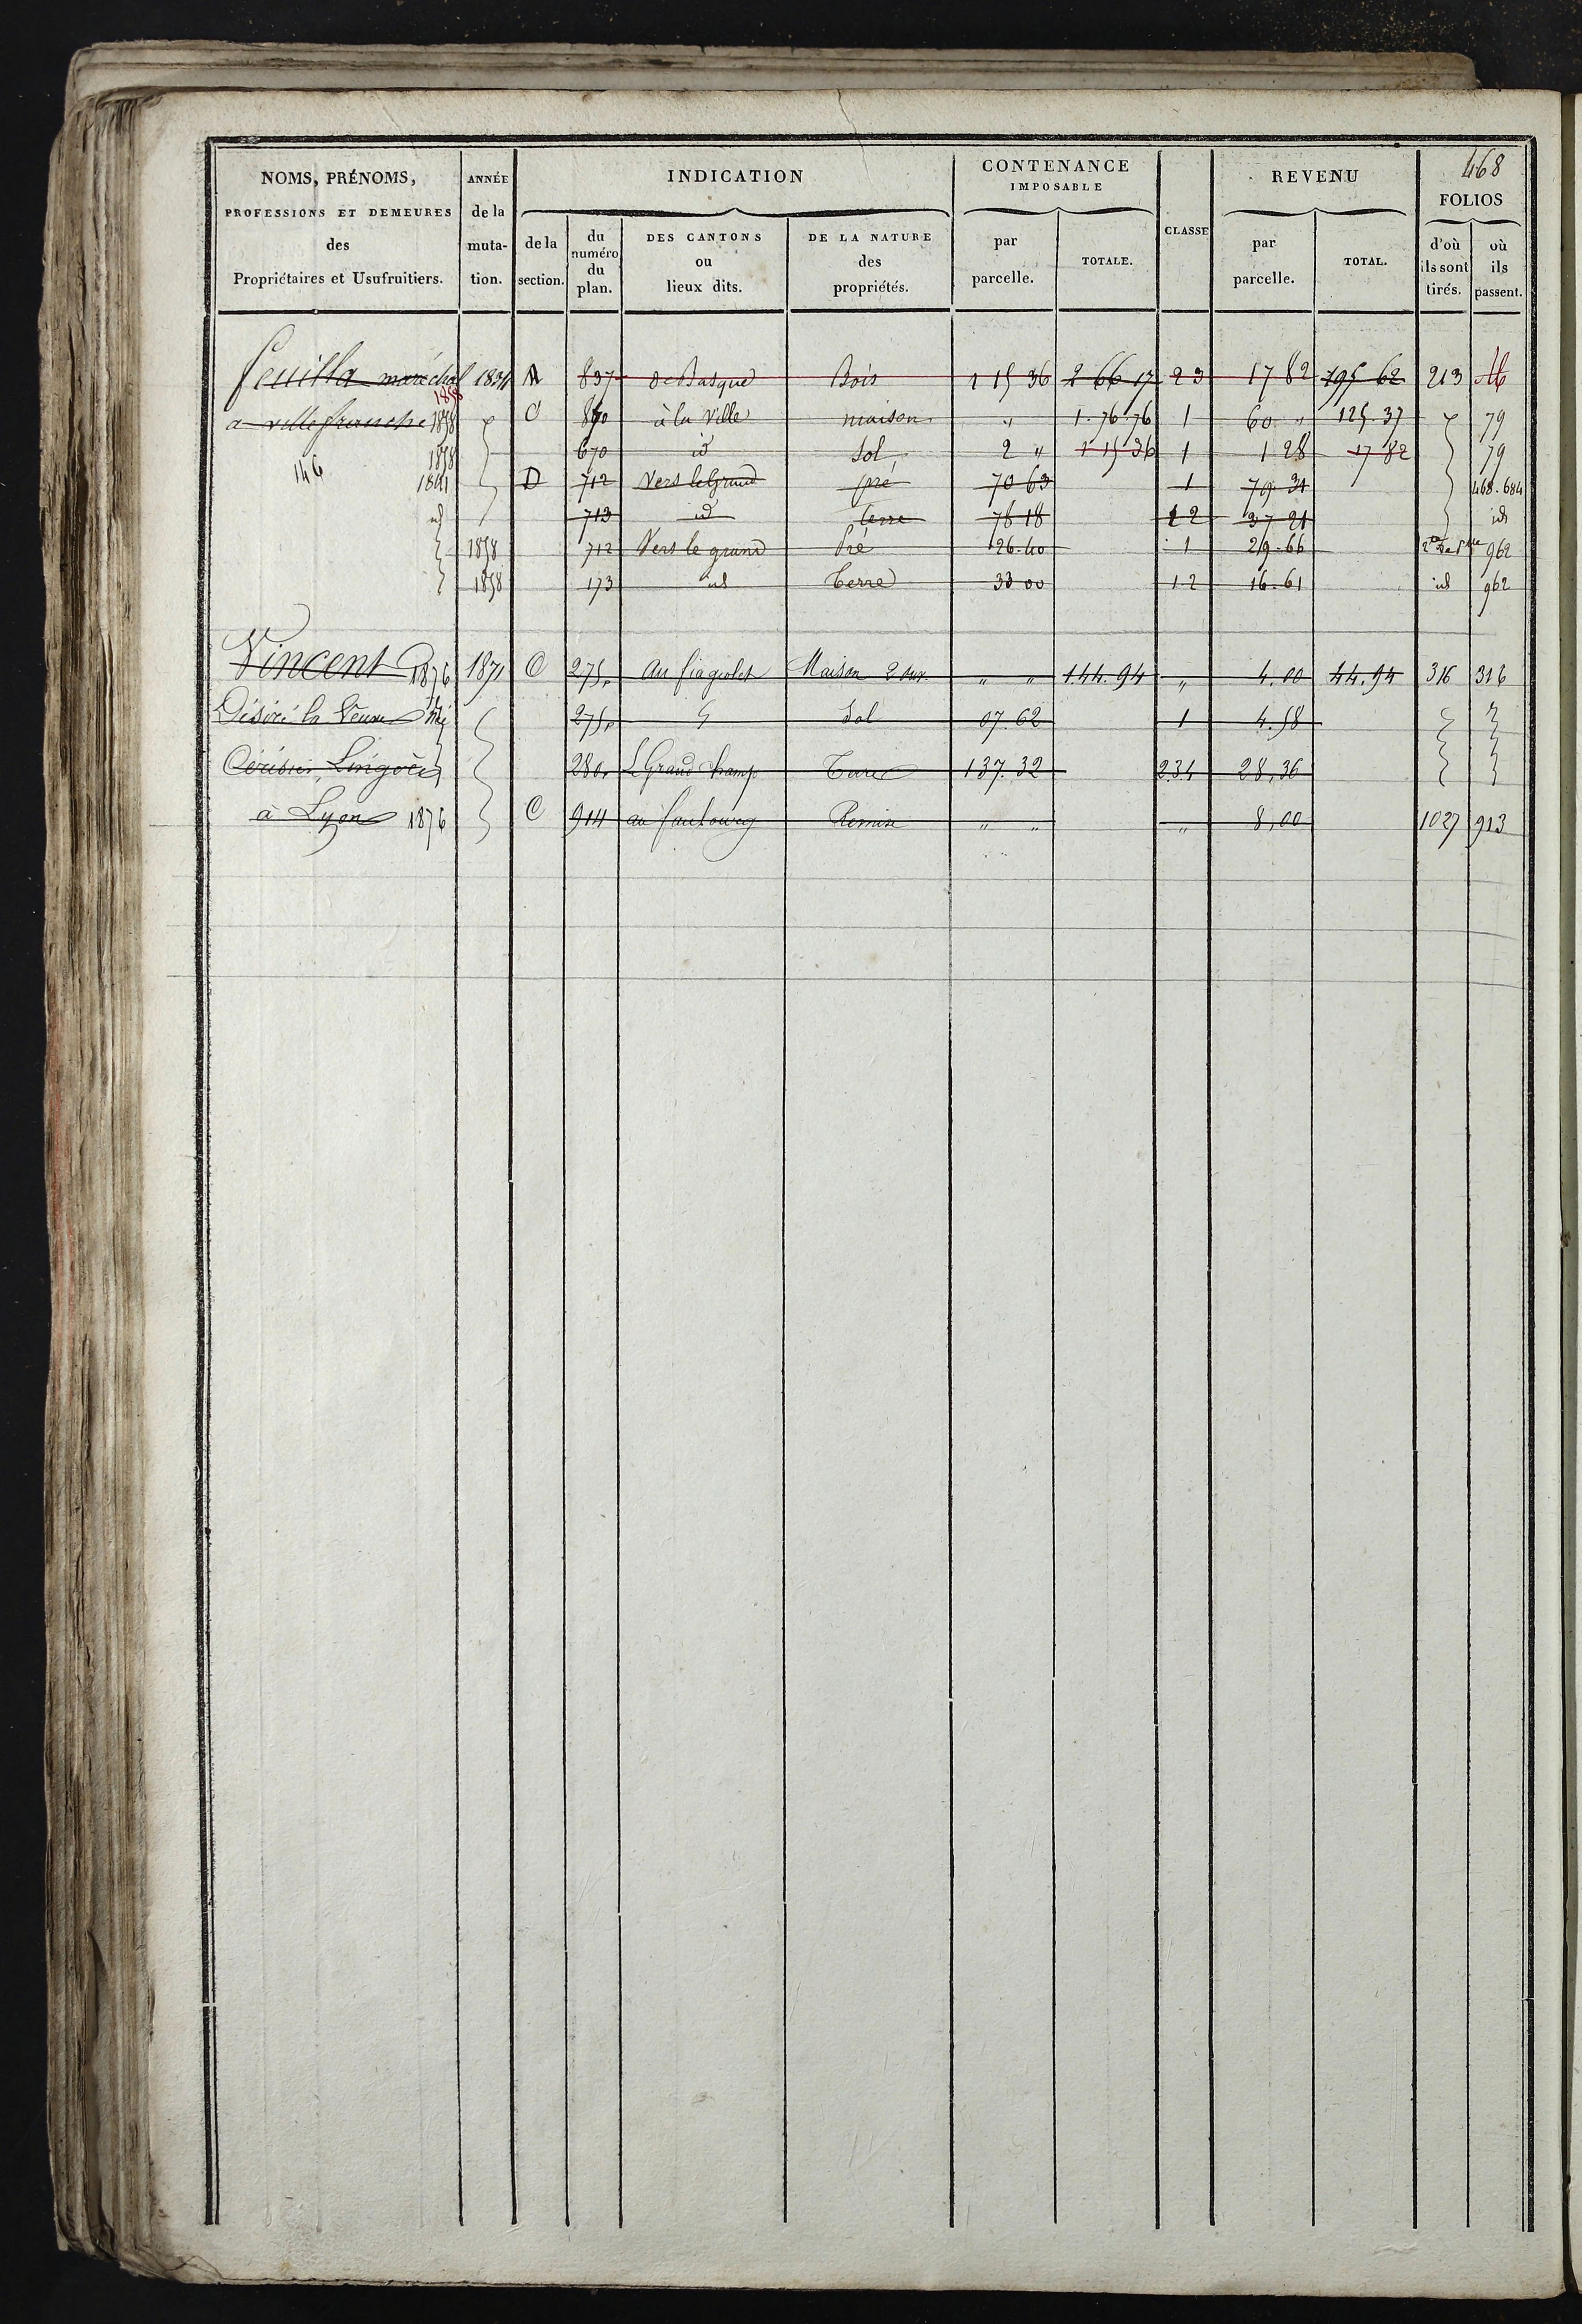 468
NOMS, PRÉNOMS, PROFESSIONS ET DEMEURES des Propriétaires et Usufruitiers.
ANNÉE de la muta- tion.
INDICATION
de la section.
du numéro du plan.
DES CANTONS ou lieux dits.
DE LA NATURE des propriétés.
CONTENANCE IMPOSABLE
par parcelle.
TOTALE.
CLASSE
REVENU
par parcelle.
TOTAL.
FOLIOS
d'où ils sont tirés.
où ils passent.
feuilla maréchal 1834 A 837 Bois 1 15 36 2 66 17 23 17 82 195 62 213
1858
a villefranche 1858 C à la Ville maison " 1.76.76 1 60 " 125.37 79
1858 670 id Sol 2 " 1 15 36 1 1 28 17 82 79
146 1841 D 712 Vers le Grand pré 70 63 1 79 31 468.684
id 713 id terre 78 18 12 37 21 id
1858 712 Vers le grand Pré 26.40 1 29.66 962
1858 173 id Terre 33 00 12 16.61 id 962
Vincent 1876 1871 C 275 Maison 2 ouv. " " 1.44.94 " 4.00 44.94 316 316
Désiré la Veuve née 275 Sol 07.62 1 4.58
280 Le Grand Champ Terre 137.32 234 28,36
à Lyon 1876 C 914 Remise " " " 8,00 1027 913